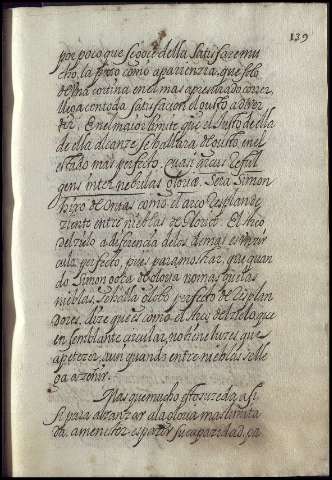 139
por poco que se goce della satisfaze mu
cho, la puso como aparienzia, que solo
de una cortina en el mas apresurado correr
llega con toda satisfacion el gusto a
En el maior limite que el Justo de ella
de ella alcanze se hallara de gusto, en el
estado mas perfecto, quasi arcus reful
gens inter nebulas gloriæ. Sera Simon
hijo de Onias como el arco resplande
ziente entre nieblas de gloria. El Arco
del zielo a diferencia de los demas es
culo perfecto, pues para mostrar, que quan
do Simon goza de gloria no mas que las
nieblas, se halla objeto perfecto de
dores, dize que es como el Arco del zielo, que
en semblante circular, no tiene luzes que
apetezer, aun quando entre nieblas se lle
ga a
Mas que mucho esto suzeda asi
si para alcanzar a la gloria mas limita
da, a menester esperar su capazidad, pa